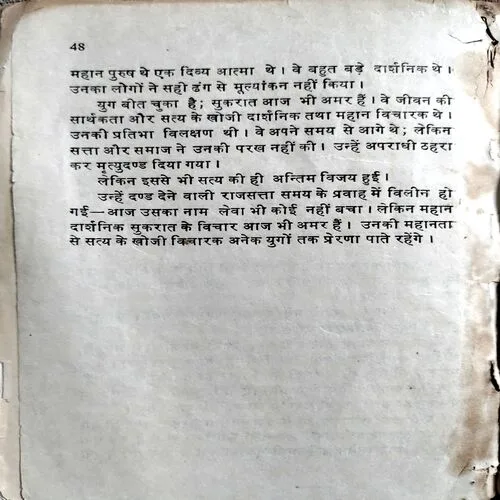 48
महान पुरुष थे एक दिव्य आत्मा थे। वे बहुत बड़े दार्शनिक थे।
उनका लोगों ने सही ढंग से मूल्यांकन नहीं किया।
युग बीत चुका है; सुकरात आज भी अमर हैं। वे जीवन की
सार्थकता और सत्य के खोजी दार्शनिक तथा महान विचारक थे।
उनकी प्रतिभा विलक्षण थी। वे अपने समय से आगे थे; लेकिन
सत्ता और समाज ने उनकी परख नहीं की। उन्हें अपराधी ठहरा
कर मृत्युदण्ड दिया गया।
लेकिन इससे भी सत्य की ही अन्तिम विजय हुई।
उन्हें दण्ड देने वाली राजसत्ता समय के प्रवाह में विलीन हो
गई—आज उसका नाम लेवा भी कोई नहीं बचा। लेकिन महान
दार्शनिक सुकरात के विचार आज भी अमर हैं। उनकी महानता
से सत्य के खोजी विचारक अनेक युगों तक प्रेरणा पाते रहेंगे।